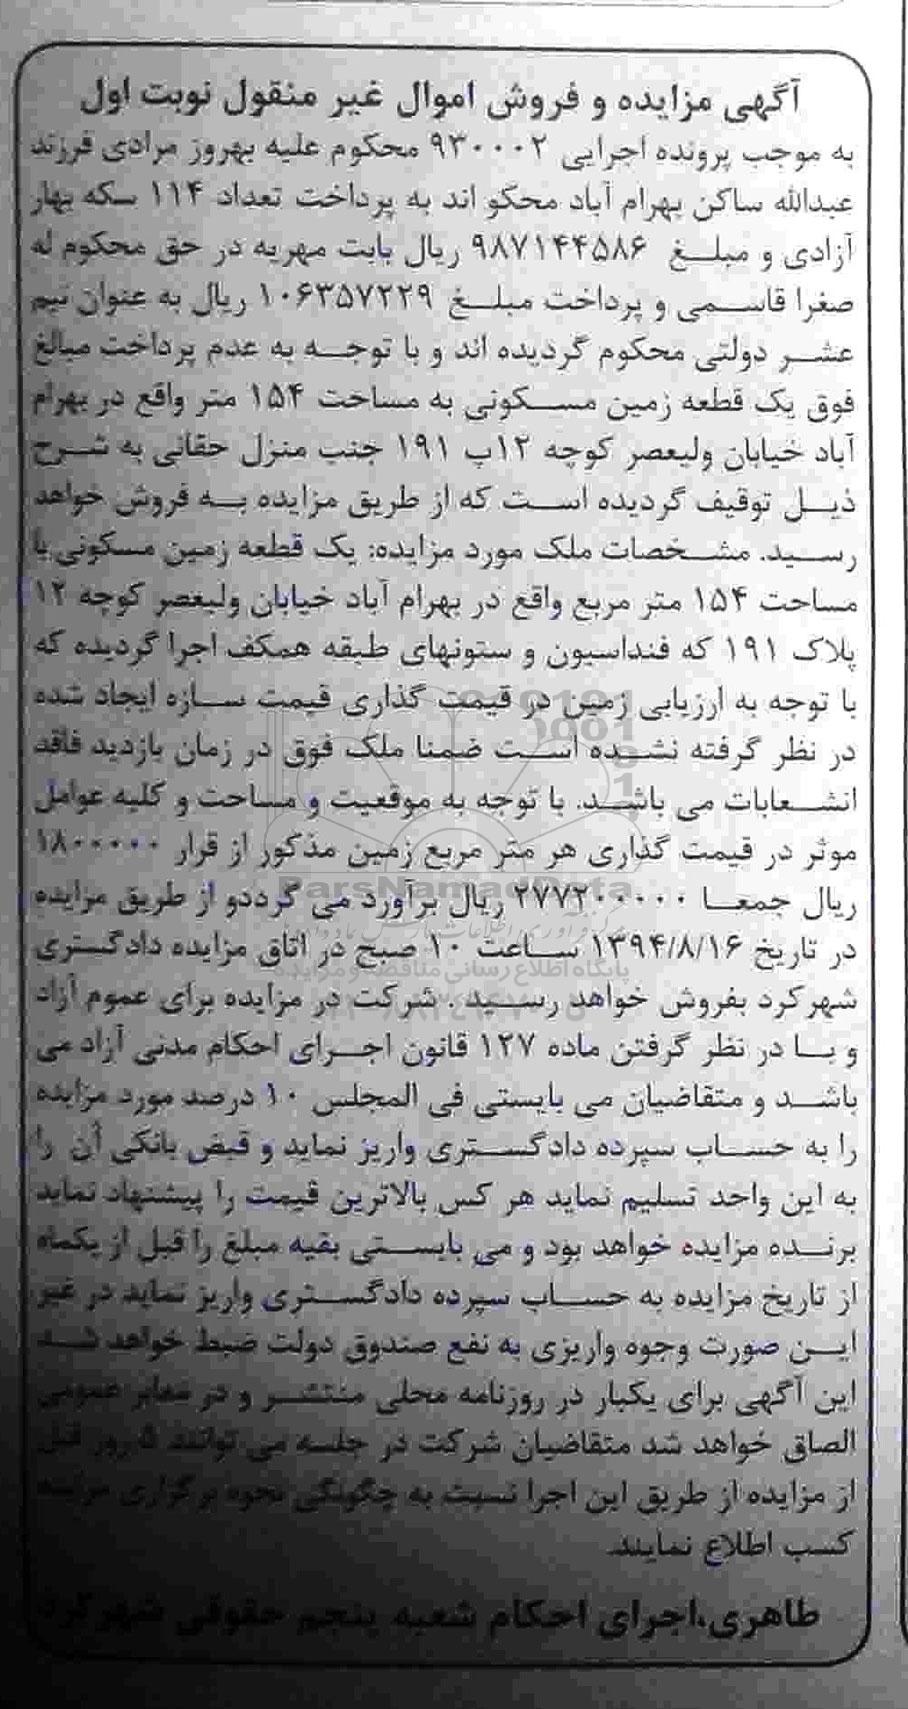 آگهی مزایده و فروش اموال غیر منقول نوبت اول
به موجب پرونده اجرایی ۹۳۰۰۰۲ محکوم علیه بهروز مرادی فرزند
عبدالله ساکن بهرام آباد محکو اند به پرداخت تعداد ۱۱۴ سکه بهار
آزادی و مبلغ ۹۸۷۱۴۴۵۸۶ ریال بابت مهریه در حق محکوم له
صغرا قاسمی و پرداخت مبلغ ۱۰۶۳۵۷۲۲۹ ریال به عنوان نیم
عشر دولتی محکوم گردیده اند و با توجه به عدم پرداخت مبالغ
فوق یک قطعه زمین مسکونی به مساحت ۱۵۴ متر واقع در بهرام
آباد خیابان ولیعصر کوچه ۱۲پ ۱۹۱ جنب منزل حقانی به شرح
ذیل توقیف گردیده است که از طریق مزایده به فروش خواهد
رسید. مشخصات ملک مورد مزایده: یک قطعه زمین مسکونی با
مساحت ۱۵۴ متر مربع واقع در بهرام آباد خیابان ولیعصر کوچه ۱۲
پلاک ۱۹۱ که فنداسیون و ستونهای طبقه همکف اجرا گردیده که
با توجه به ارزیابی زمین در قیمت گذاری قیمت سازه ایجاد شده
در نظر گرفته نشده است ضمنا ملک فوق در زمان بازدید فاقد
انشعابات می باشد. با توجه به موقعیت و مساحت و کلیه عوامل
موثر در قیمت گذاری هر متر مربع زمین مذکور از قرار ۱۸۰۰۰۰۰
ریال جمعا ۲۷۷۲۰۰۰۰۰ ریال برآورد می گرددو از طریق مزایده
در تاریخ ۱۳۹۴/۸/۱۶ ساعت ۱۰ صبح در اتاق مزایده دادگستری
شهرکرد بفروش خواهد رسید. شرکت در مزایده برای عموم آزاد
و با در نظر گرفتن ماده ۱۲۷ قانون اجرای احکام مدنی آزاد می
باشد و متقاضیان می بایستی فی المجلس ۱۰ درصد مورد مزایده
را به حساب سپرده دادگستری واریز نماید و قبض بانکی آن را
به این واحد تسلیم نماید هر کس بالاترین قیمت را پیشنهاد نماید
برنده مزایده خواهد بود و می بایستی بقیه مبلغ را قبل از یکماه
از تاریخ مزایده به حساب سپرده دادگستری واریز نماید در غیر
این صورت وجوه واریزی به نفع صندوق دولت ضبط خواهد شد
این آگهی برای یکبار در روزنامه محلی منتشر و در معابر عمومی
الصاق خواهد شد متقاضیان شرکت در جلسه می توانند ۵ روز قبل
از مزایده از طریق این اجرا نسبت به چگونگی نحوه برگزاری مزایده
کسب اطلاع نمایند.
طاهری،اجرای احکام شعبه پنجم حقوقی شهرکرد
ParsNamadData
پایگاه اطلاع رسانی مناقصه و مزایده